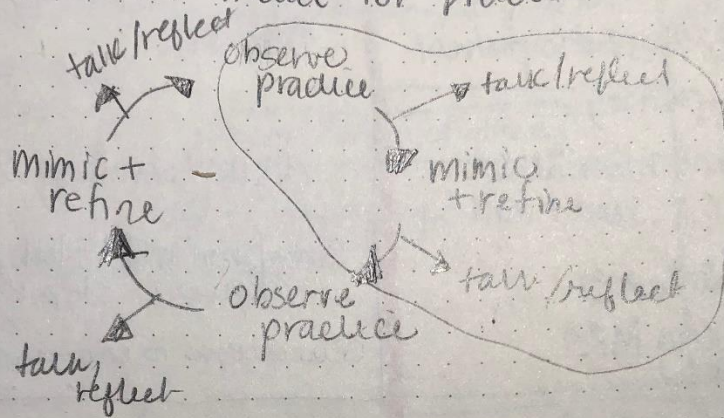 for
talk/reflect
observe
practice
talk/reflect
mimic +
refine
mimic
+ refine
talk/reflect
observe
practice
talk,
reflect